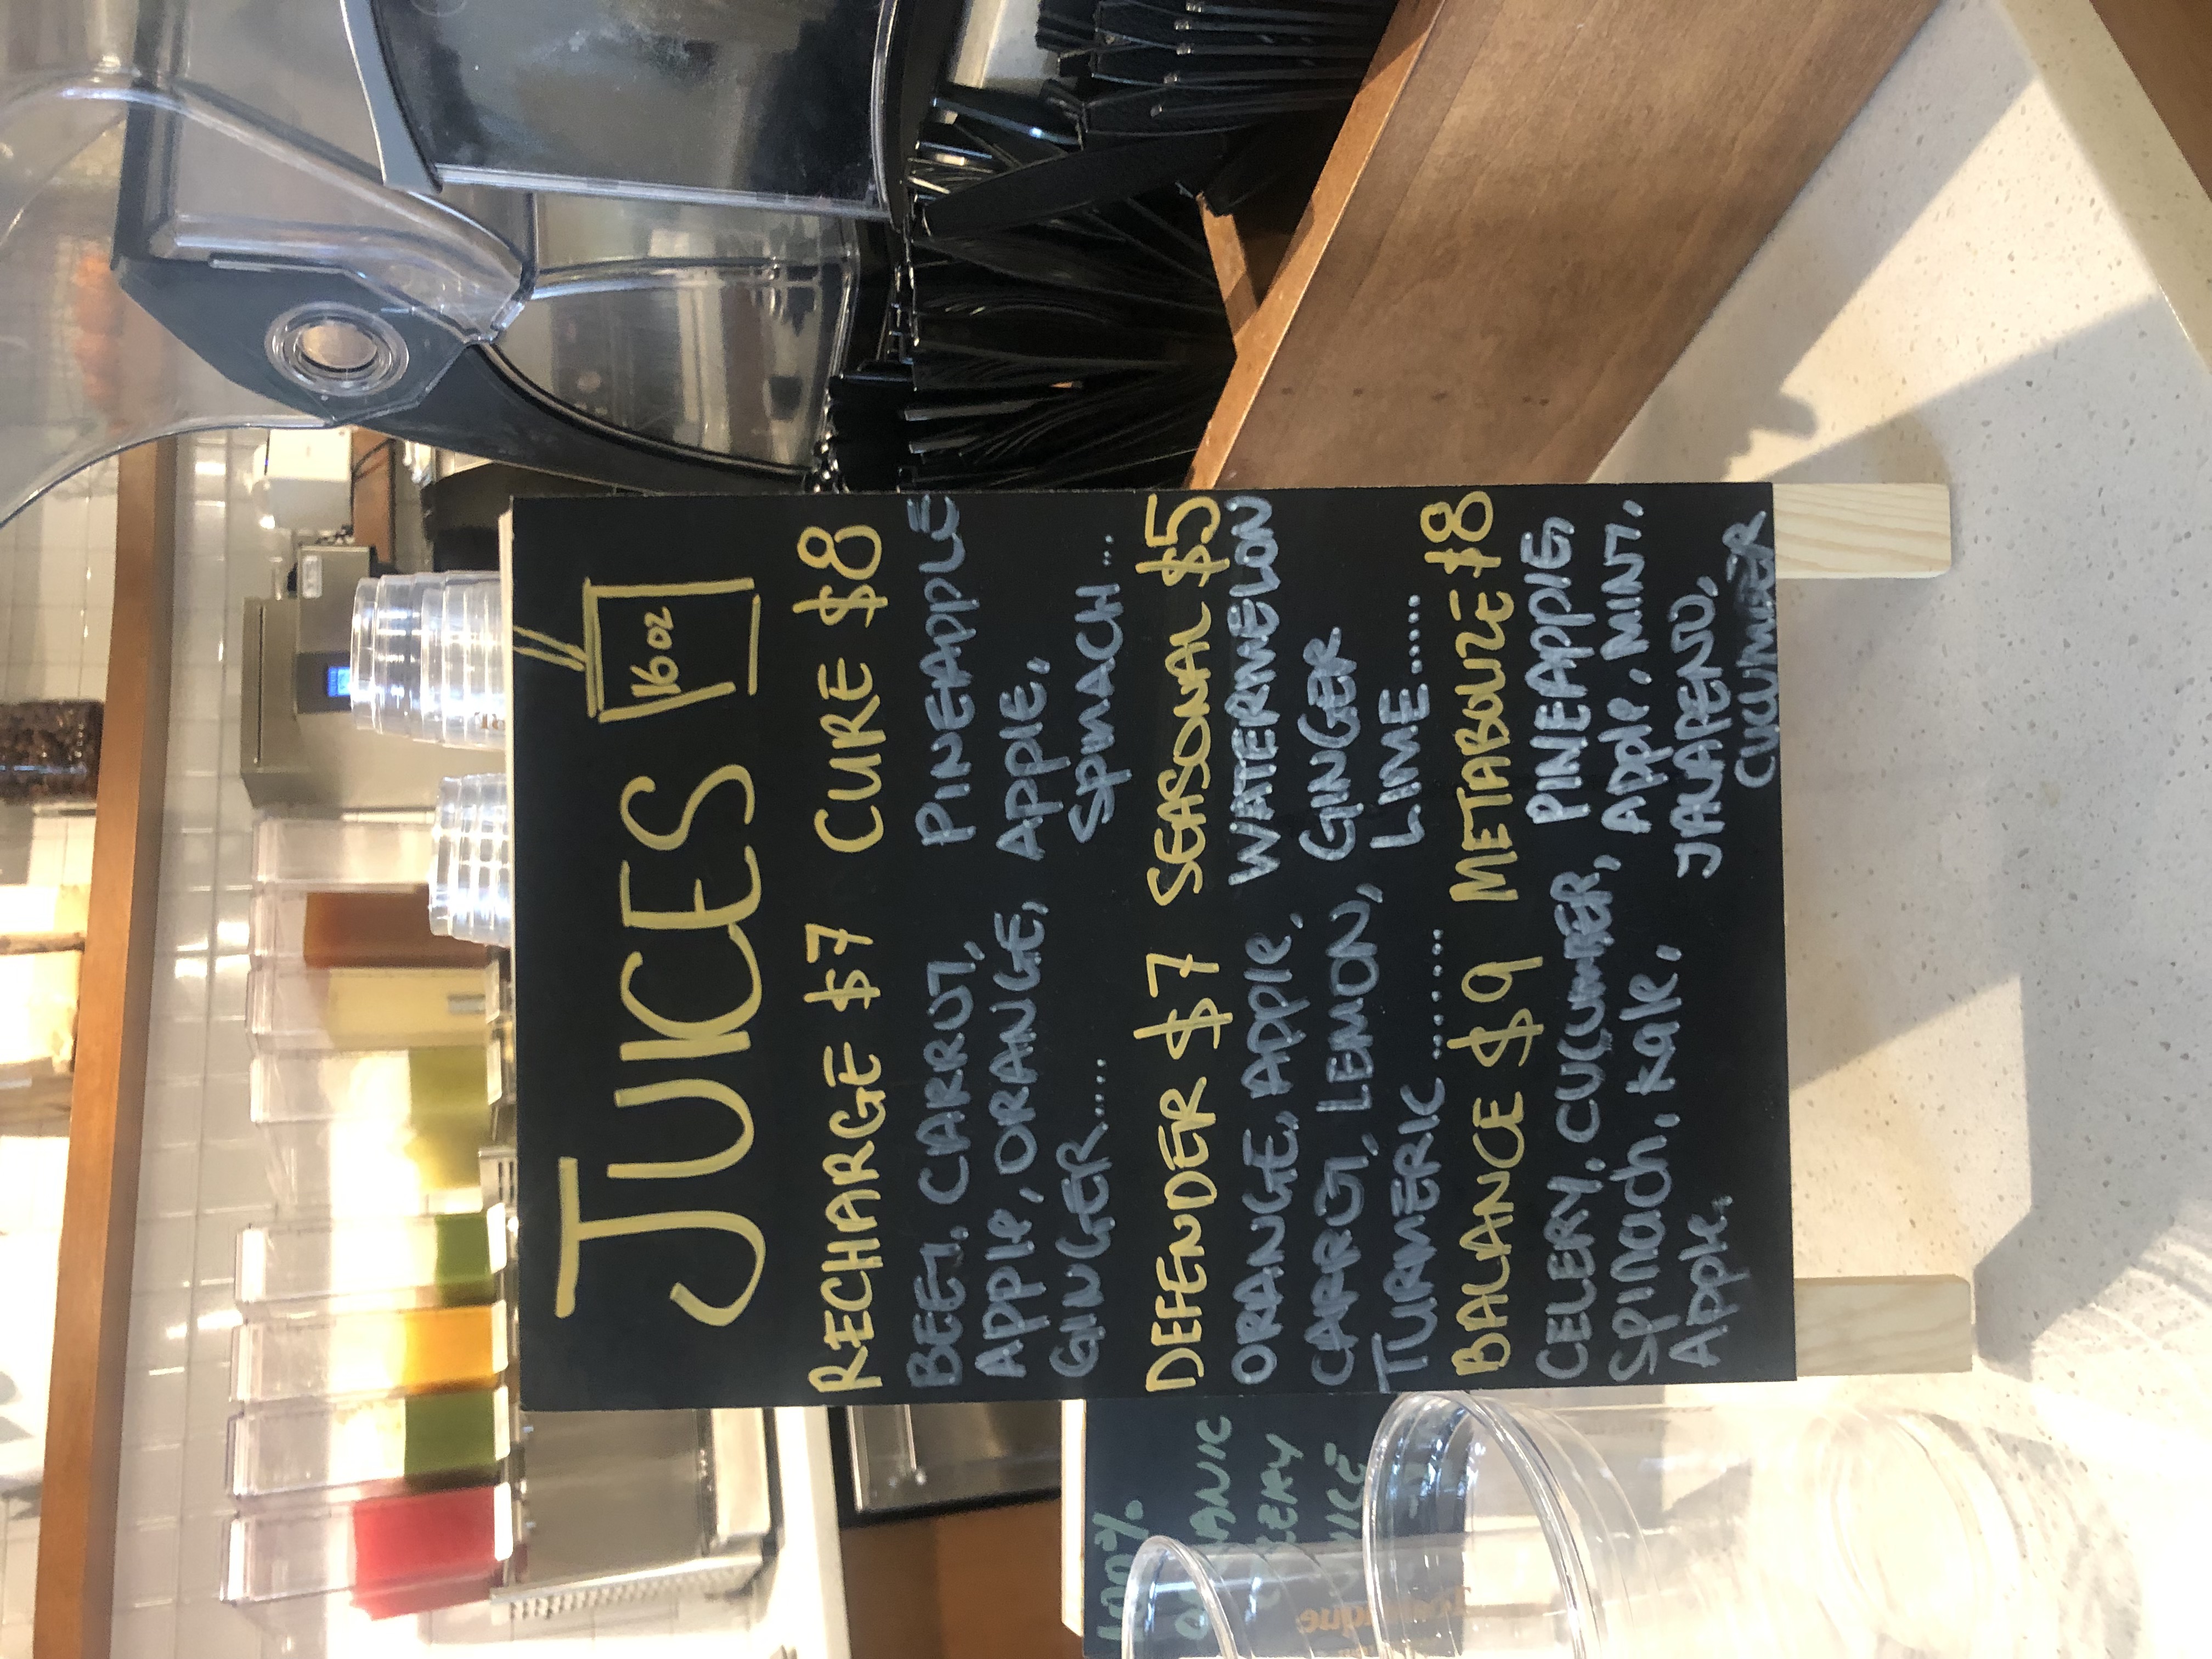 JUICES
16oz
RECHARGE $7
BEET, CARROT,
APPle, ORANGE,
GINGER.....
CURE $8
PINEAPPLE
APPlE,
SPINACH...
DEFENDER $7
ORANGE, APPle,
CARROT, LEMON,
TURMERIC .......
SEASONAL $5
WATERMELON
GINGER
LIME.....
BALANCE $9
CELERY, CUCUMBER,
Spinach, kale,
Apple.
METABOLIZE $8
PINEAPPlE,
APPle, MINT,
JALAPENO,
CUCUMBER
100%